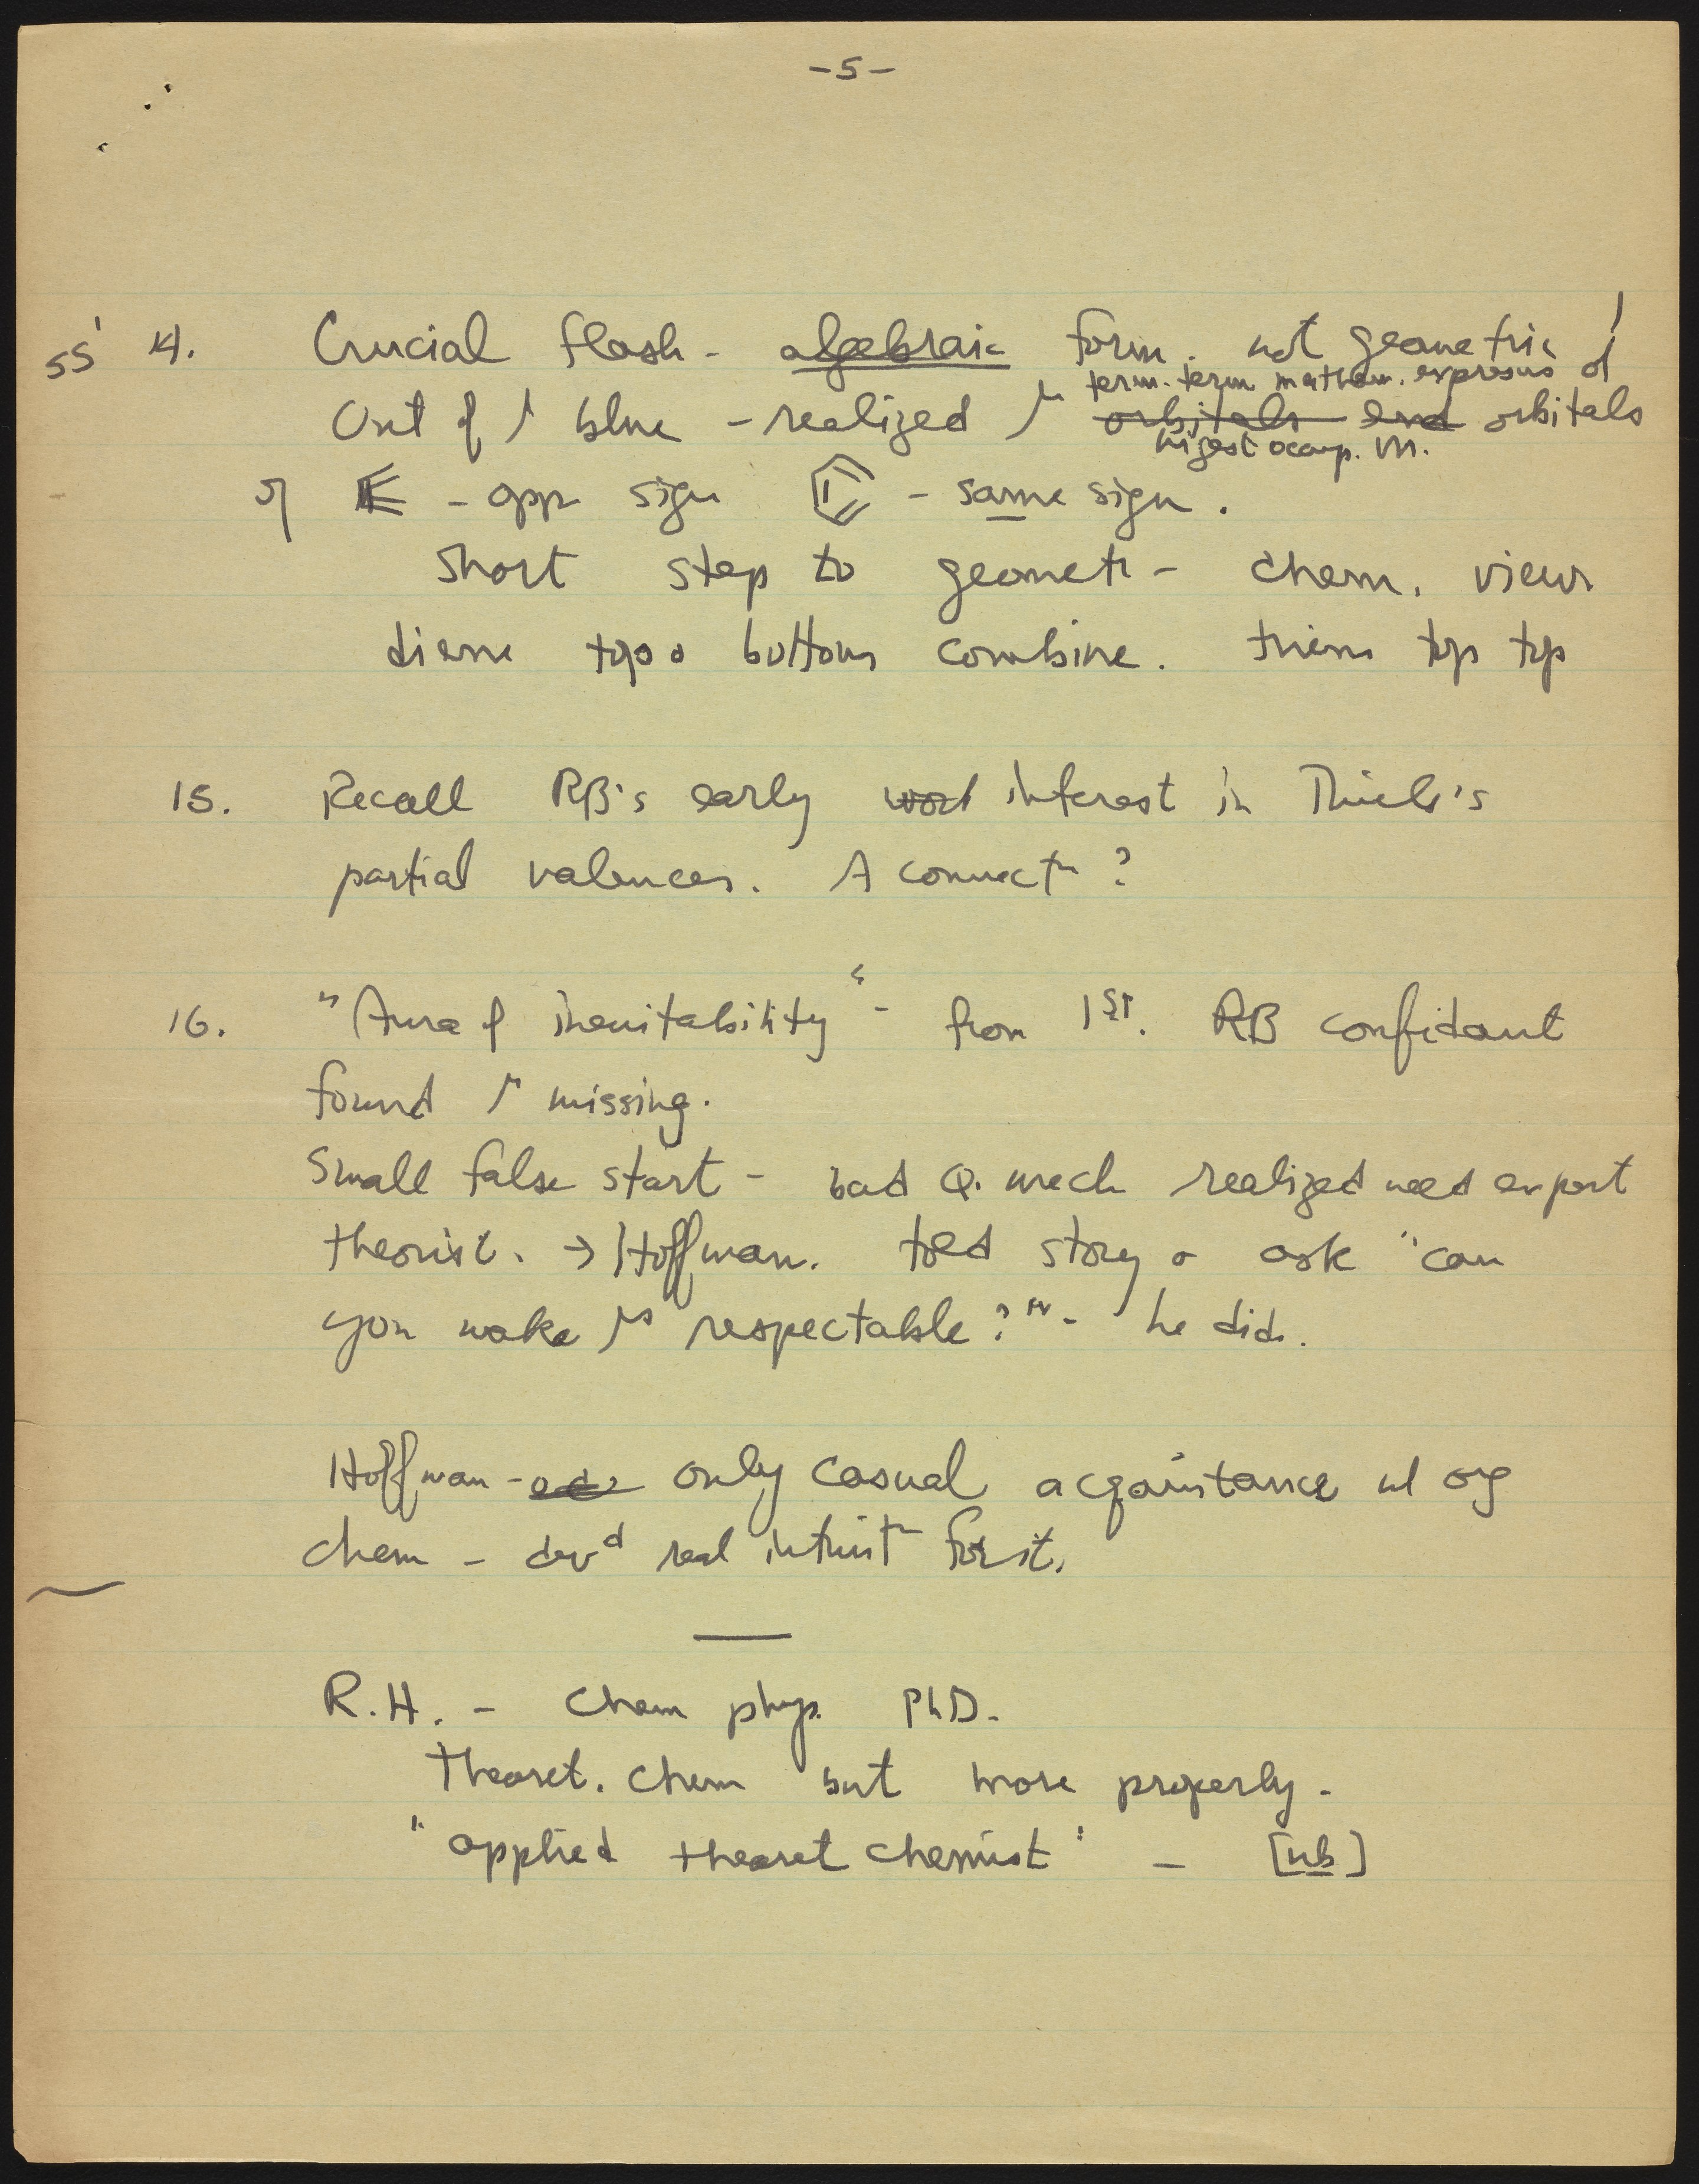 -5-
55' 14. Crucial flash - algebraic form. not geometric!
term. term mathem. expresns of
Out of / blue - realized orbitals end orbitals
higest occup. m.
of - opp sign - same sign.
Short step to geometr - chem. view
diene top & bottom combine. triene top top
15. Recall RB's early work interest in Thiele's
partial valences. A connectn?
16. "Aura of inevitability" - from 1st. RB confidant
found missing.
Small false start - bad Q. mech realized need expert
theorist. → Hoffman. told story & ask "can
you make respectable?" - he did.
Hoffman - only casual acqaintance w/ org
chem - devd real intuitn for it.
R.H. - Chem phys. PhD.
Theoret. Chem but more properly -
"applied theoret chemist" - [nb]